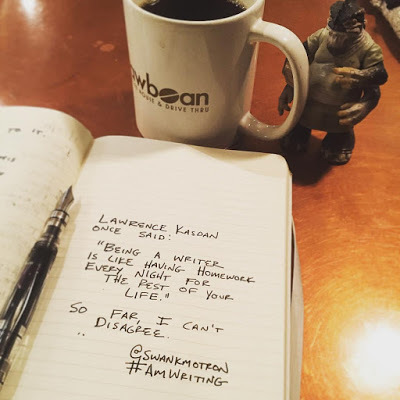 TO IT.
& DRIVE THRU
LAWRENCE KASDAN
ONCE SAID:
"BEING A WRITER
IS LIKE HAVING HOMEWORK
EVERY NIGHT FOR
THE REST OF YOUR
LIFE."
SO FAR, I CAN'T
DISAGREE.
@SWANKMOTRON
#AMWRITING